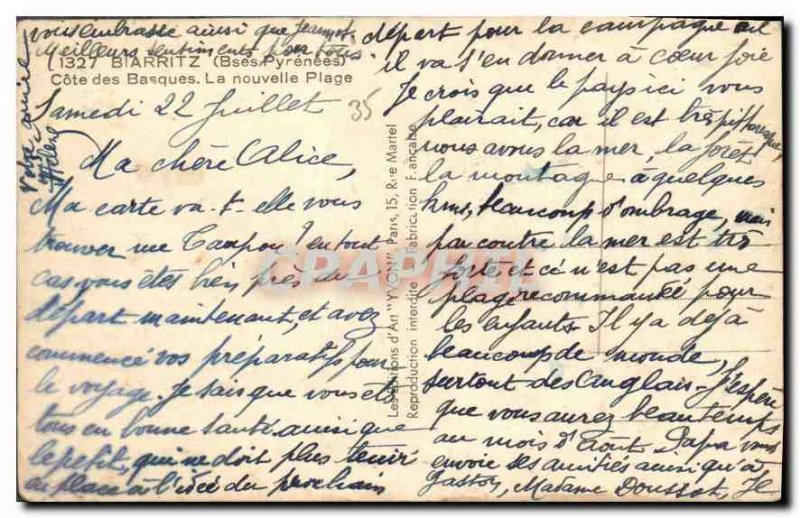 1327 BIARRITZ (Bses-Pyrénées)
Côte des Basques. La nouvelle Plage
Samedi 22 Juillet 35
Ma chère Alice,
Ma carte va-t-elle vous
trouver rue ? en tout
cas vous êtes bien près du
départ maintenant, et avez
commencé vos préparatifs pour
le voyage. Je sais que vous êtes
tous en bonne santé ainsi que
le petit, qui ne doit plus tenir
en place à l'idée du prochain
départ pour la campagne où
il va s'en donner à cœur joie
Je crois que le pays ici vous
plairait, car il est très pittoresque,
nous avons la mer, la forêt
la montagne à quelques
kms, beaucoup d'ombrage, mais
par contre la mer est très
forte et ce n'est pas une
plage recommandée pour
les enfants. Il y a déjà
beaucoup de monde,
surtout des Anglais. J'espère
que vous aurez beau temps
au mois d'Août. Papa vous
envoie ses amitiés ainsi qu'à
Gaston, Madame Doussot, Je
vous embrasse ainsi que Jeannot.
Meilleurs sentiments pour tous
Votre amie
Hélène
Les Editions d'Art "YVON", Paris, 15, Rue Martel
Reproduction interdite Fabrication Française
CPAPHIL